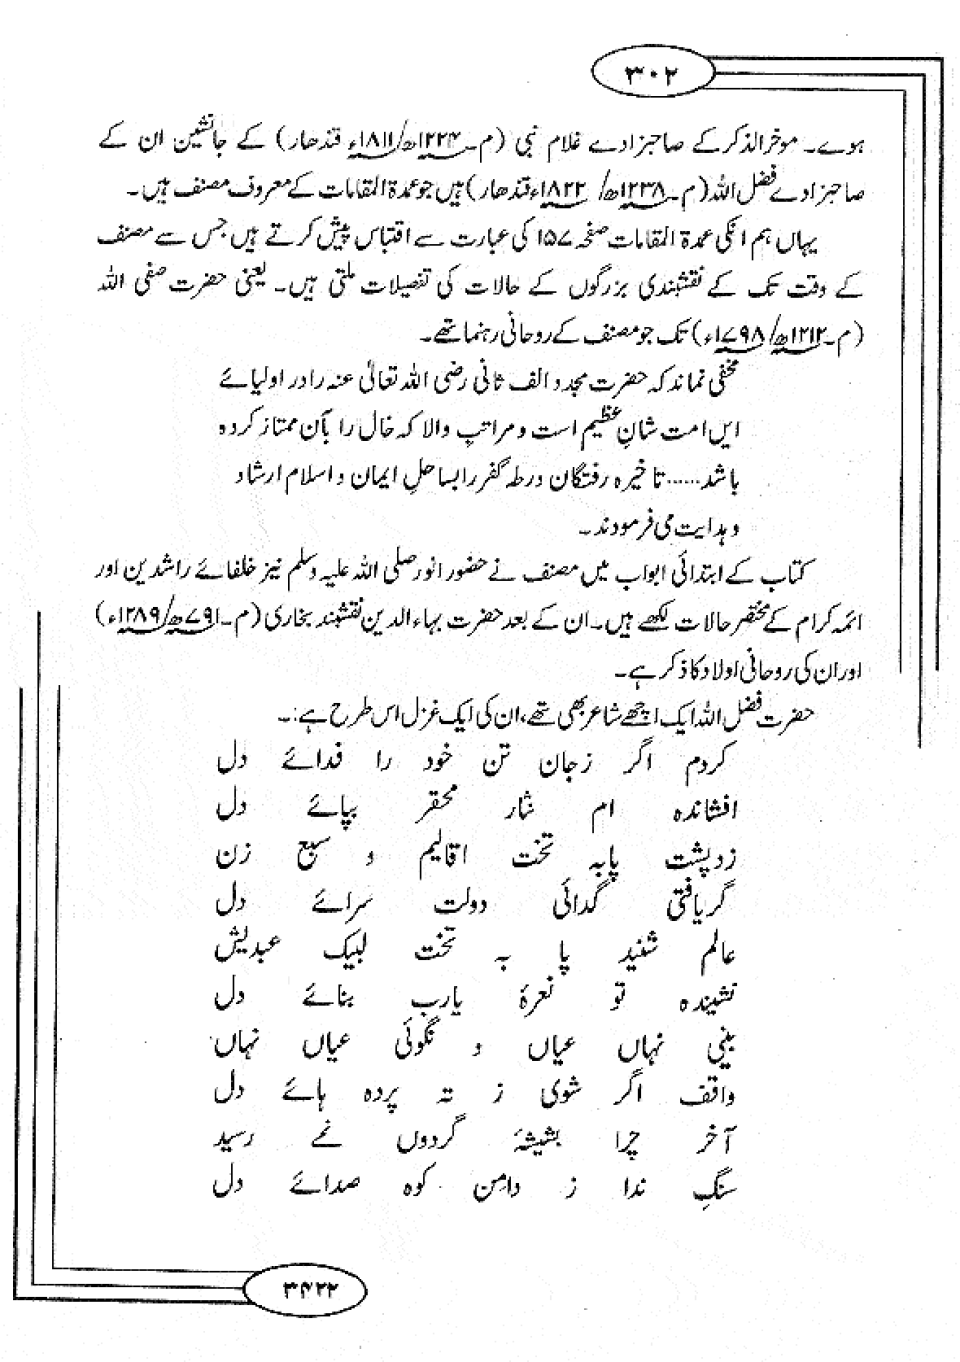 ۳۰۲
ہوے۔ موخرالذکر کے صاحبزادے غلام نبی (م۔۱۲۲۴ھ/۱۸۱۱ء قندھار) کے جانشین ان کے
صاحبزادے فضل اللہ (م۔۱۲۳۸ھ/ ۱۸۲۲ء قندھار) ہیں جو عمدۃ المقامات کے معروف مصنف ہیں۔
یہاں ہم انکی عمدۃ المقامات صفحہ ۱۵۷ کی عبارت سے اقتباس پیش کرتے ہیں جس سے مصنف
کے وقت تک کے نقشبندی بزرگوں کے حالات کی تفصیلات ملتی ہیں۔ یعنی حضرت صفی اللہ
(م۔۱۲۱۲ھ/۱۷۹۸ء) تک جو مصنف کے روحانی رہنما تھے۔
مخفی نماند کہ حضرت مجدد الف ثانی رضی اللہ تعالیٰ عنہ را در اولیائے
ایں امت شانِ عظیم است و مراتبِ والا کہ خال را بآن ممتاز کردہ
باشد...... تا خیرہ رفتگان ورطہ کفر را بساحلِ ایمان و اسلام ارشاد
و ہدایت می فرمودند۔
کتاب کے ابتدائی ابواب میں مصنف نے حضور انور صلی اللہ علیہ وسلم نیز خلفائے راشدین اور
ائمہ کرام کے مختصر حالات لکھے ہیں۔ ان کے بعد حضرت بہاء الدین نقشبند بخاری (م۔۷۹۱ھ/۱۲۸۹ء)
اور ان کی روحانی اولاد کا ذکر ہے۔
حضرت فضل اللہ ایک اچھے شاعر بھی تھے، ان کی ایک غزل اس طرح ہے:۔
کردم اگر زجان تن خود را فدائے دل
افشاندہ ام نثار محقر بپائے دل
زد پشت پابہ تخت اقالیم و سبع زن
گر یافتی گدائی دولت سرائے دل
عالم شنید پا بہ تخت لبیک عبدیش
نشیندہ تو نعرۂ یارب بنائے دل
بینی نہاں عیاں و نگوئی عیاں نہاں
واقف اگر شوی ز تہ پردہ ہائے دل
آخر چرا بشیشۂ گردوں نمے رسید
سنگِ ندا ز دامن کوہ صدائے دل
۳۴۲۲